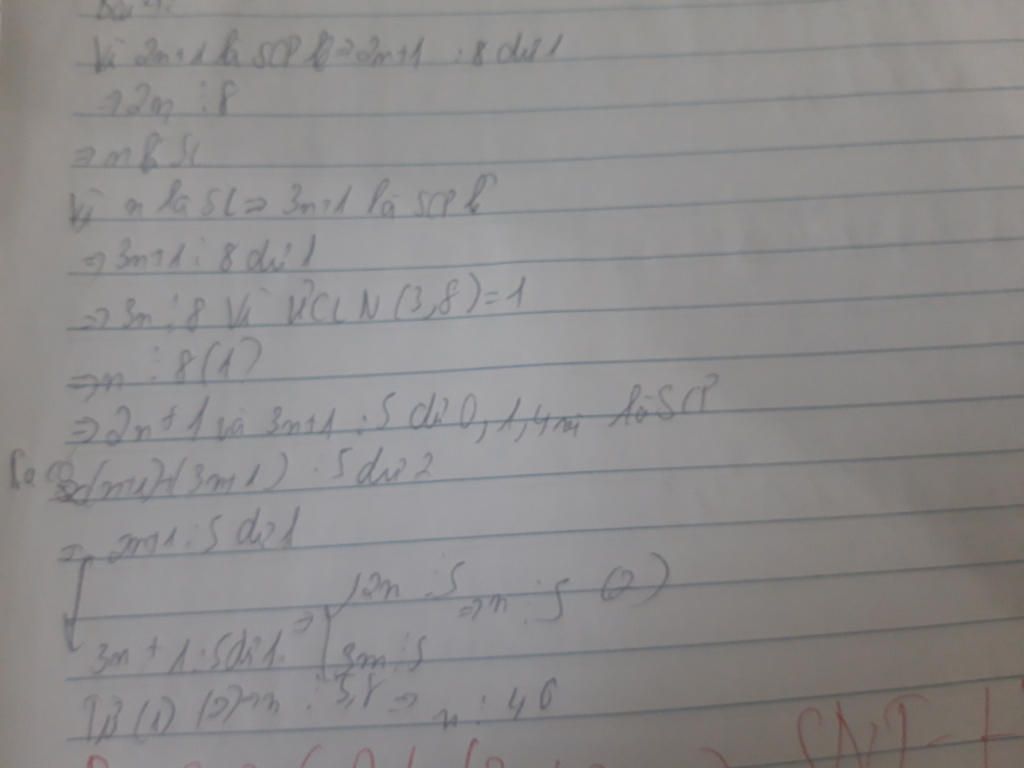 Vì 2n+1 là SCP lẻ => 2n+1 : 8 dư 1
=> 2n ⋮ 8
=> n là SC
Vì n là SC => 3n+1 là SCP lẻ
=> 3n+1 : 8 dư 1
=> 3n ⋮ 8 Vì ƯCLN (3,8)=1
=> n ⋮ 8 (1)
=> 2n+1 và 3n+1 : 5 dư 0,1,4 là SCP
(3n+1) : 5 dư 2
=> 2n+1 : 5 dư 1
=> 2n ⋮ 5 => n ⋮ 5 (2)
3n+1 : 5 dư 1 3n ⋮ 5
Từ (1) (2) => n ⋮ 5,8 => n ⋮ 40
SNT